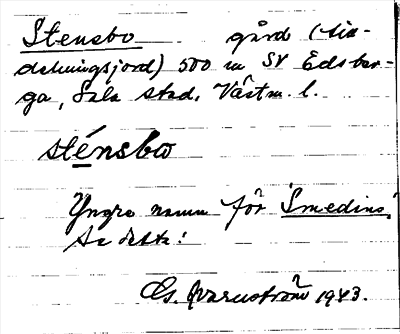 Stensbo gård (av-
delningsjord) 500 m SV Edsber-
ga, Sala stad, Västm. l.
sténsbo
Yngre namn för Smedins.
Se detta!
Gs. Kvarnström 1943.